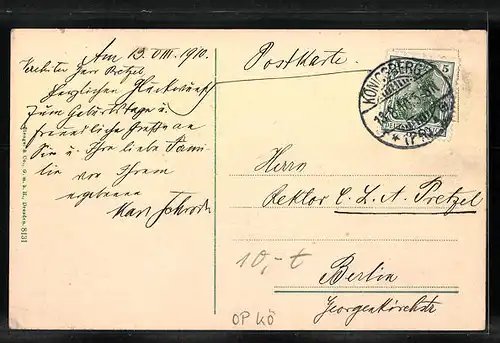 Am 13. VIII. 1910.
Verehrter Herr Pretzel
Herzlichen Glückwunsch
zum Geburtstage u.
freundliche Grüße an
Sie u. Ihre liebe Fami-
lie von Ihrem
ergebenen
Postkarte.
KÖNIGSBERG
(PR)
5
Herrn
Rektor C. L. A. Pretzel
Berlin
Georgenkirchstr
10,-t
OP KÖ
G. m. b. H., Dresden. 8131